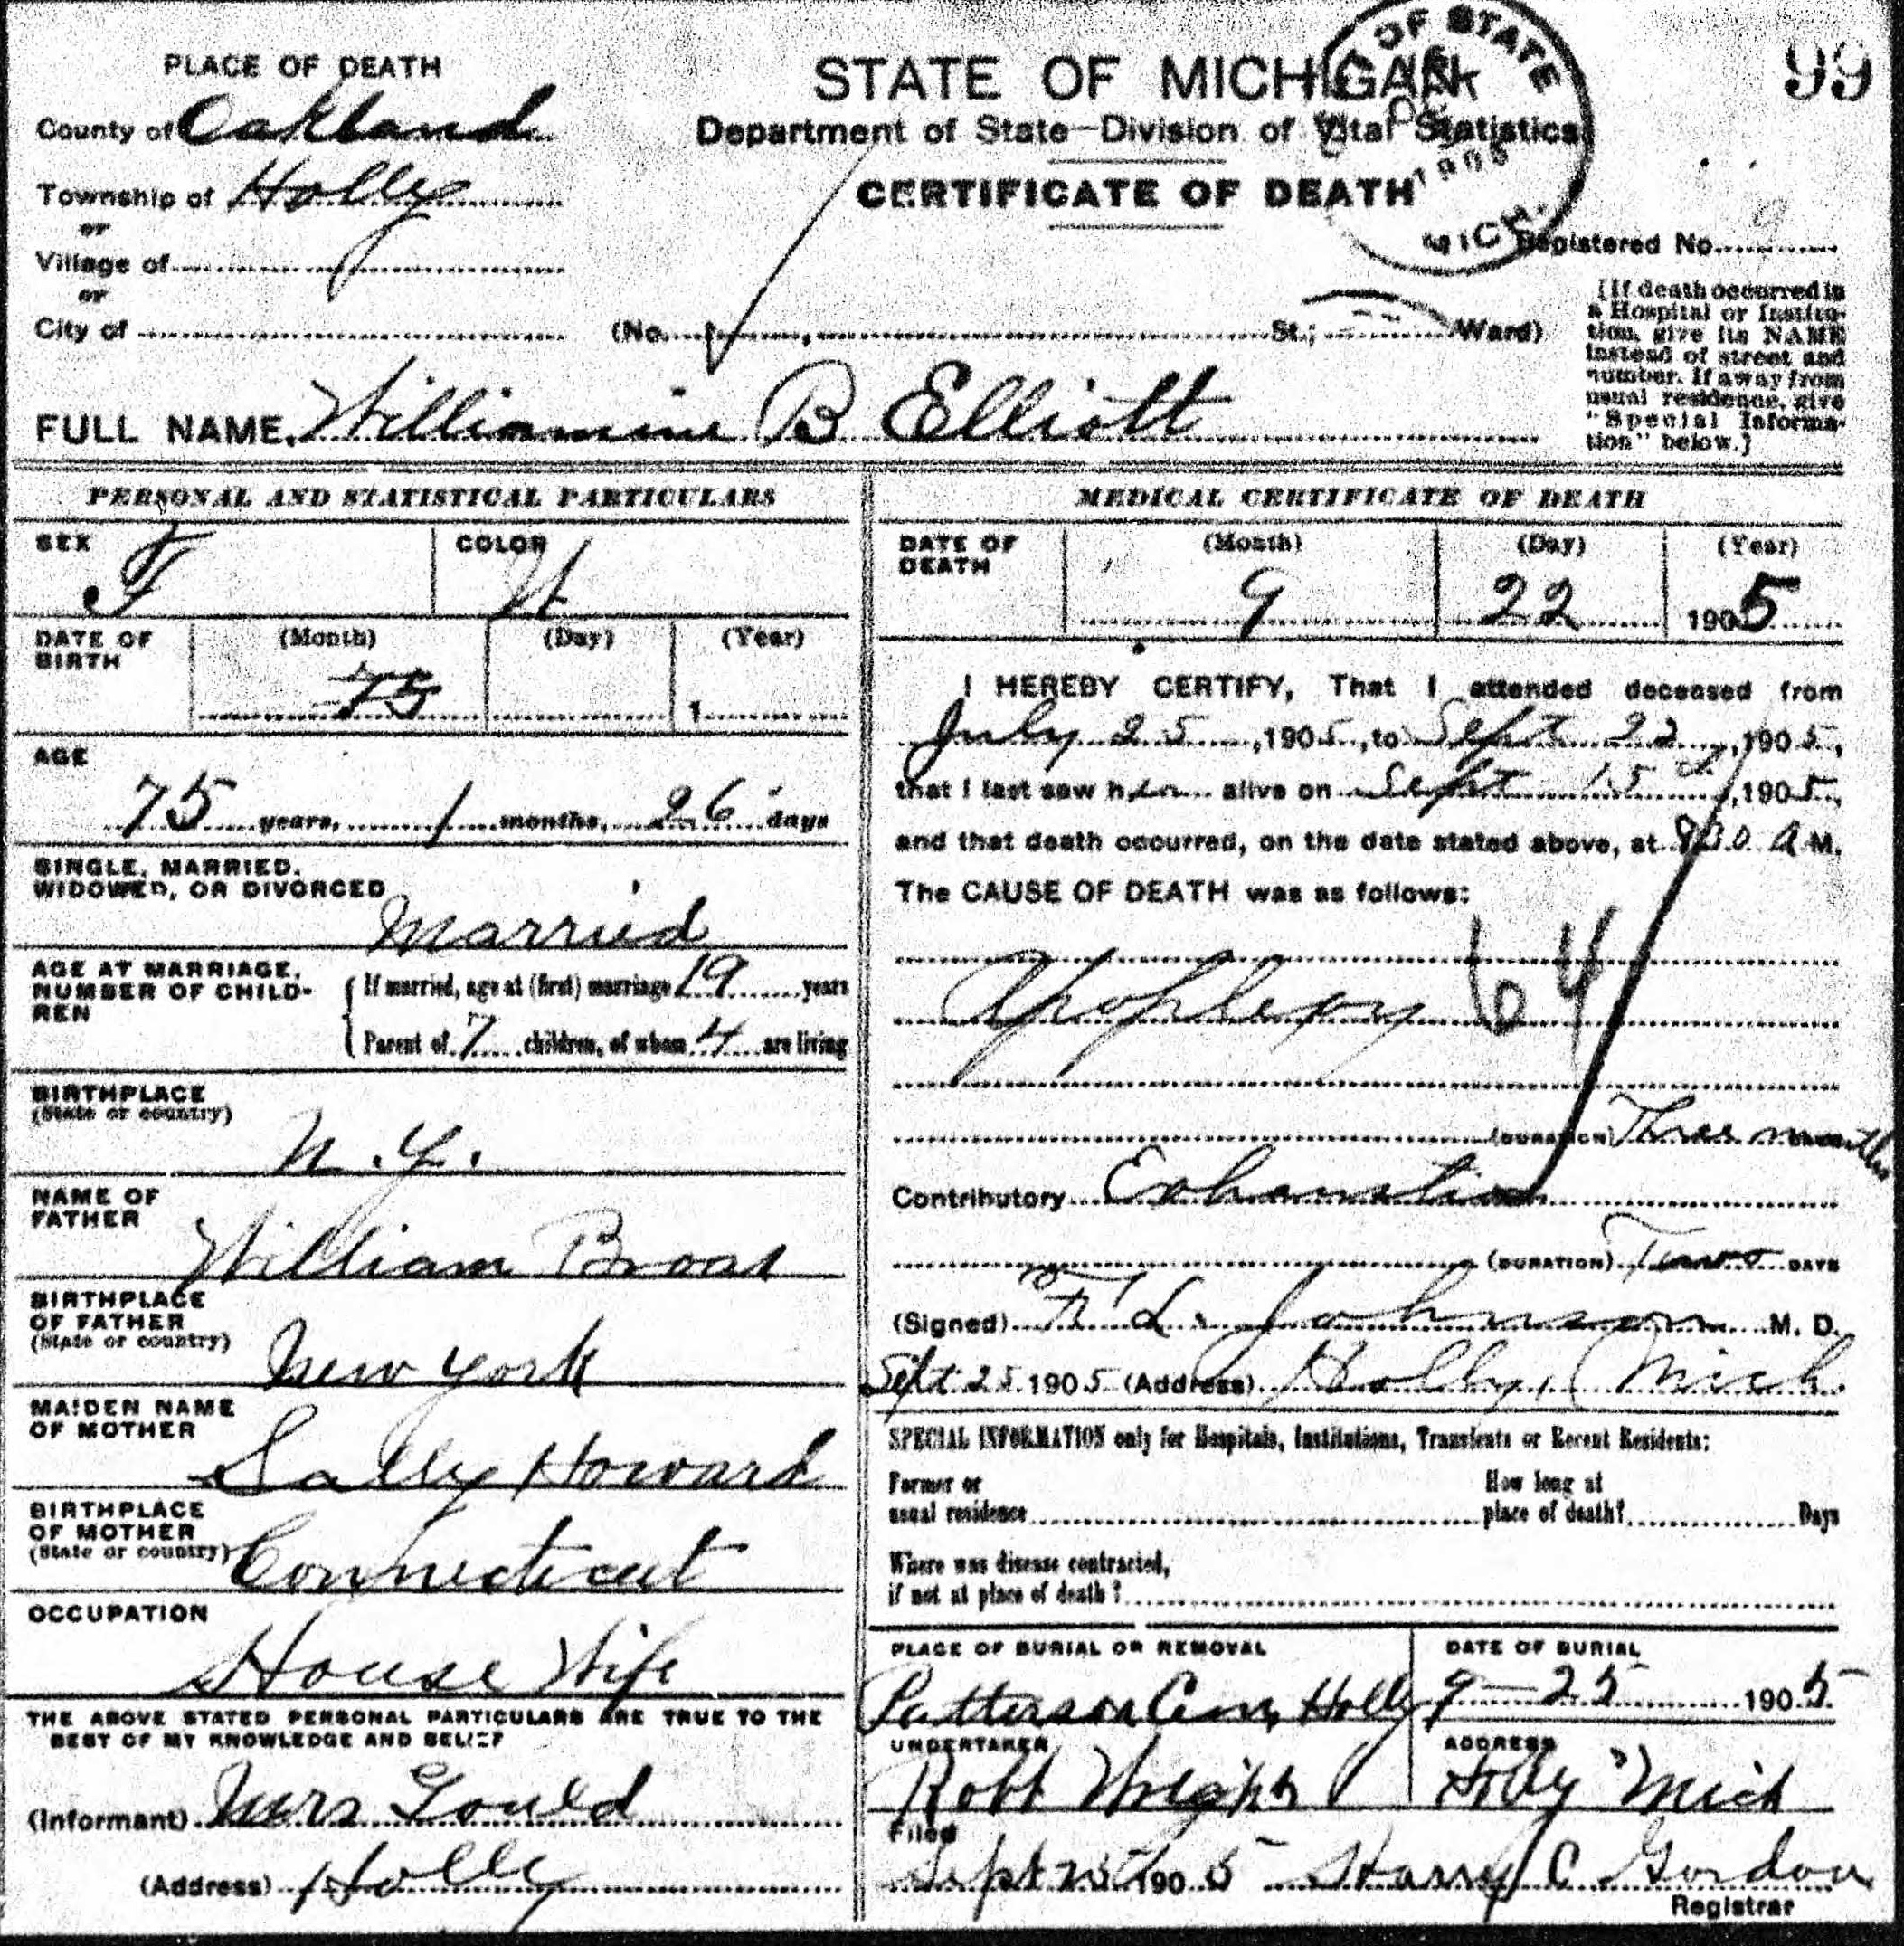 99
OF STATE
MICH.
PLACE OF DEATH
County of Oakland
Township of Holly
or
Village of
or
City of
STATE OF MICHIGAN
Department of State—Division of Vital Statistics
CERTIFICATE OF DEATH
Registered No.
(No. , St.; Ward)
[If death occurred in
a Hospital or Institu-
tion, give its NAME
instead of street and
number. If away from
usual residence, give
"Special Informa-
tion" below.]
FULL NAME, Williamine B Elliott
PERSONAL AND STATISTICAL PARTICULARS
SEX F
COLOR
DATE OF BIRTH (Month) (Day) (Year)
75
AGE
75 years, 1 months, 26 days
SINGLE, MARRIED,
WIDOWED, OR DIVORCED
Married
AGE AT MARRIAGE,
NUMBER OF CHILD-
REN
If married, age at (first) marriage 19 years
Parent of 7 children, of whom 4 are living
BIRTHPLACE
(State or country)
N.Y.
NAME OF
FATHER
William Broas
BIRTHPLACE
OF FATHER
(State or country)
New York
MAIDEN NAME
OF MOTHER
Sally Howard
BIRTHPLACE
OF MOTHER
(State or country)
Connecticut
OCCUPATION
House Wife
THE ABOVE STATED PERSONAL PARTICULARS ARE TRUE TO THE
BEST OF MY KNOWLEDGE AND BELIEF
(Informant) Mrs Gould
(Address) Holly
MEDICAL CERTIFICATE OF DEATH
DATE OF DEATH (Month) (Day) (Year)
9 22 1905
I HEREBY CERTIFY, That I attended deceased from
July 25, 1905, to Sept 22, 1905,
that I last saw her alive on Sept 15, 1905,
and that death occurred, on the date stated above, at A M.
The CAUSE OF DEATH was as follows:
Apoplexy 64
(DURATION) Three months
Contributory Exhaustion
(DURATION) Two DAYS
(Signed) L. Johnson M. D.
Sept 25 1905 (Address) Holly, Mich.
SPECIAL INFORMATION only for Hospitals, Institutions, Transients or Recent Residents:
Former or
usual residence
How long at
place of death? Days
Where was disease contracted,
if not at place of death?
PLACE OF BURIAL OR REMOVAL
Patterson Cem, Holly
DATE OF BURIAL
9—25 1905
UNDERTAKER
Robt Wright
ADDRESS
Holly Mich
Filed
Sept 25 1905 Harry C Gordon
Registrar